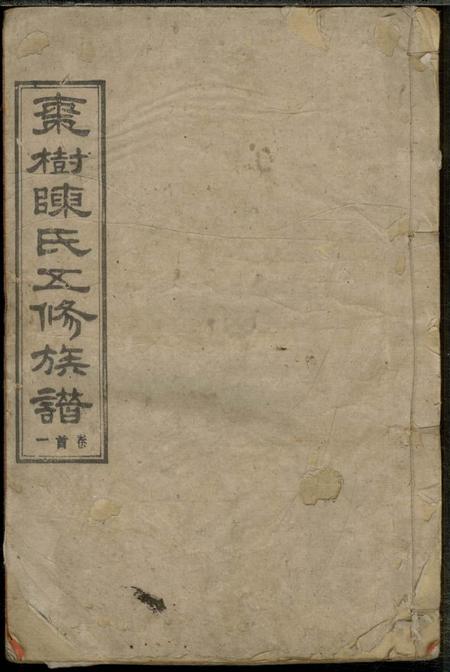 棗樹陳氏五修族譜
卷首一